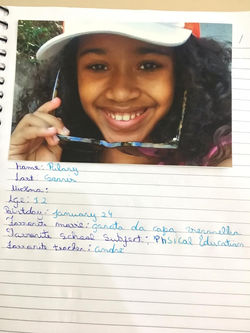 Name: Pilary
Last Soares
Age: 12
Birtday: January 24
Favorite movie: garota da capa vermelha
Favorite School Subject: Physical Education
favorite teacher: André